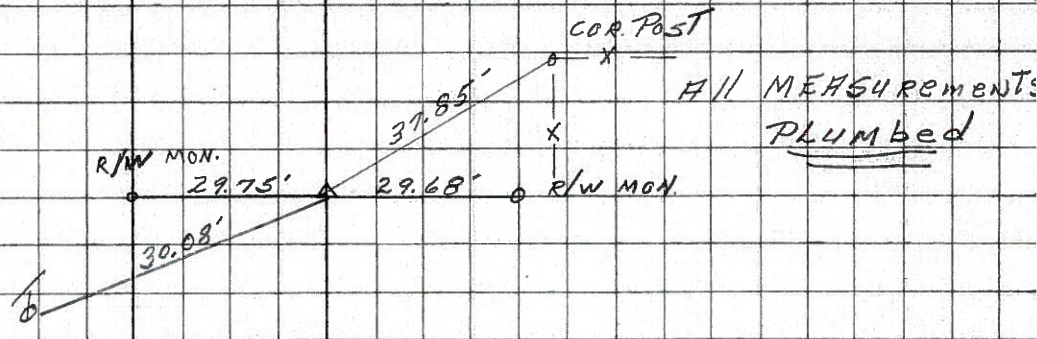 COR. POST
X
37.85'
All MEASUREmenTS
PLumbed
X
R/W MON.
29.75'
29.68'
R/W MON.
30.08'